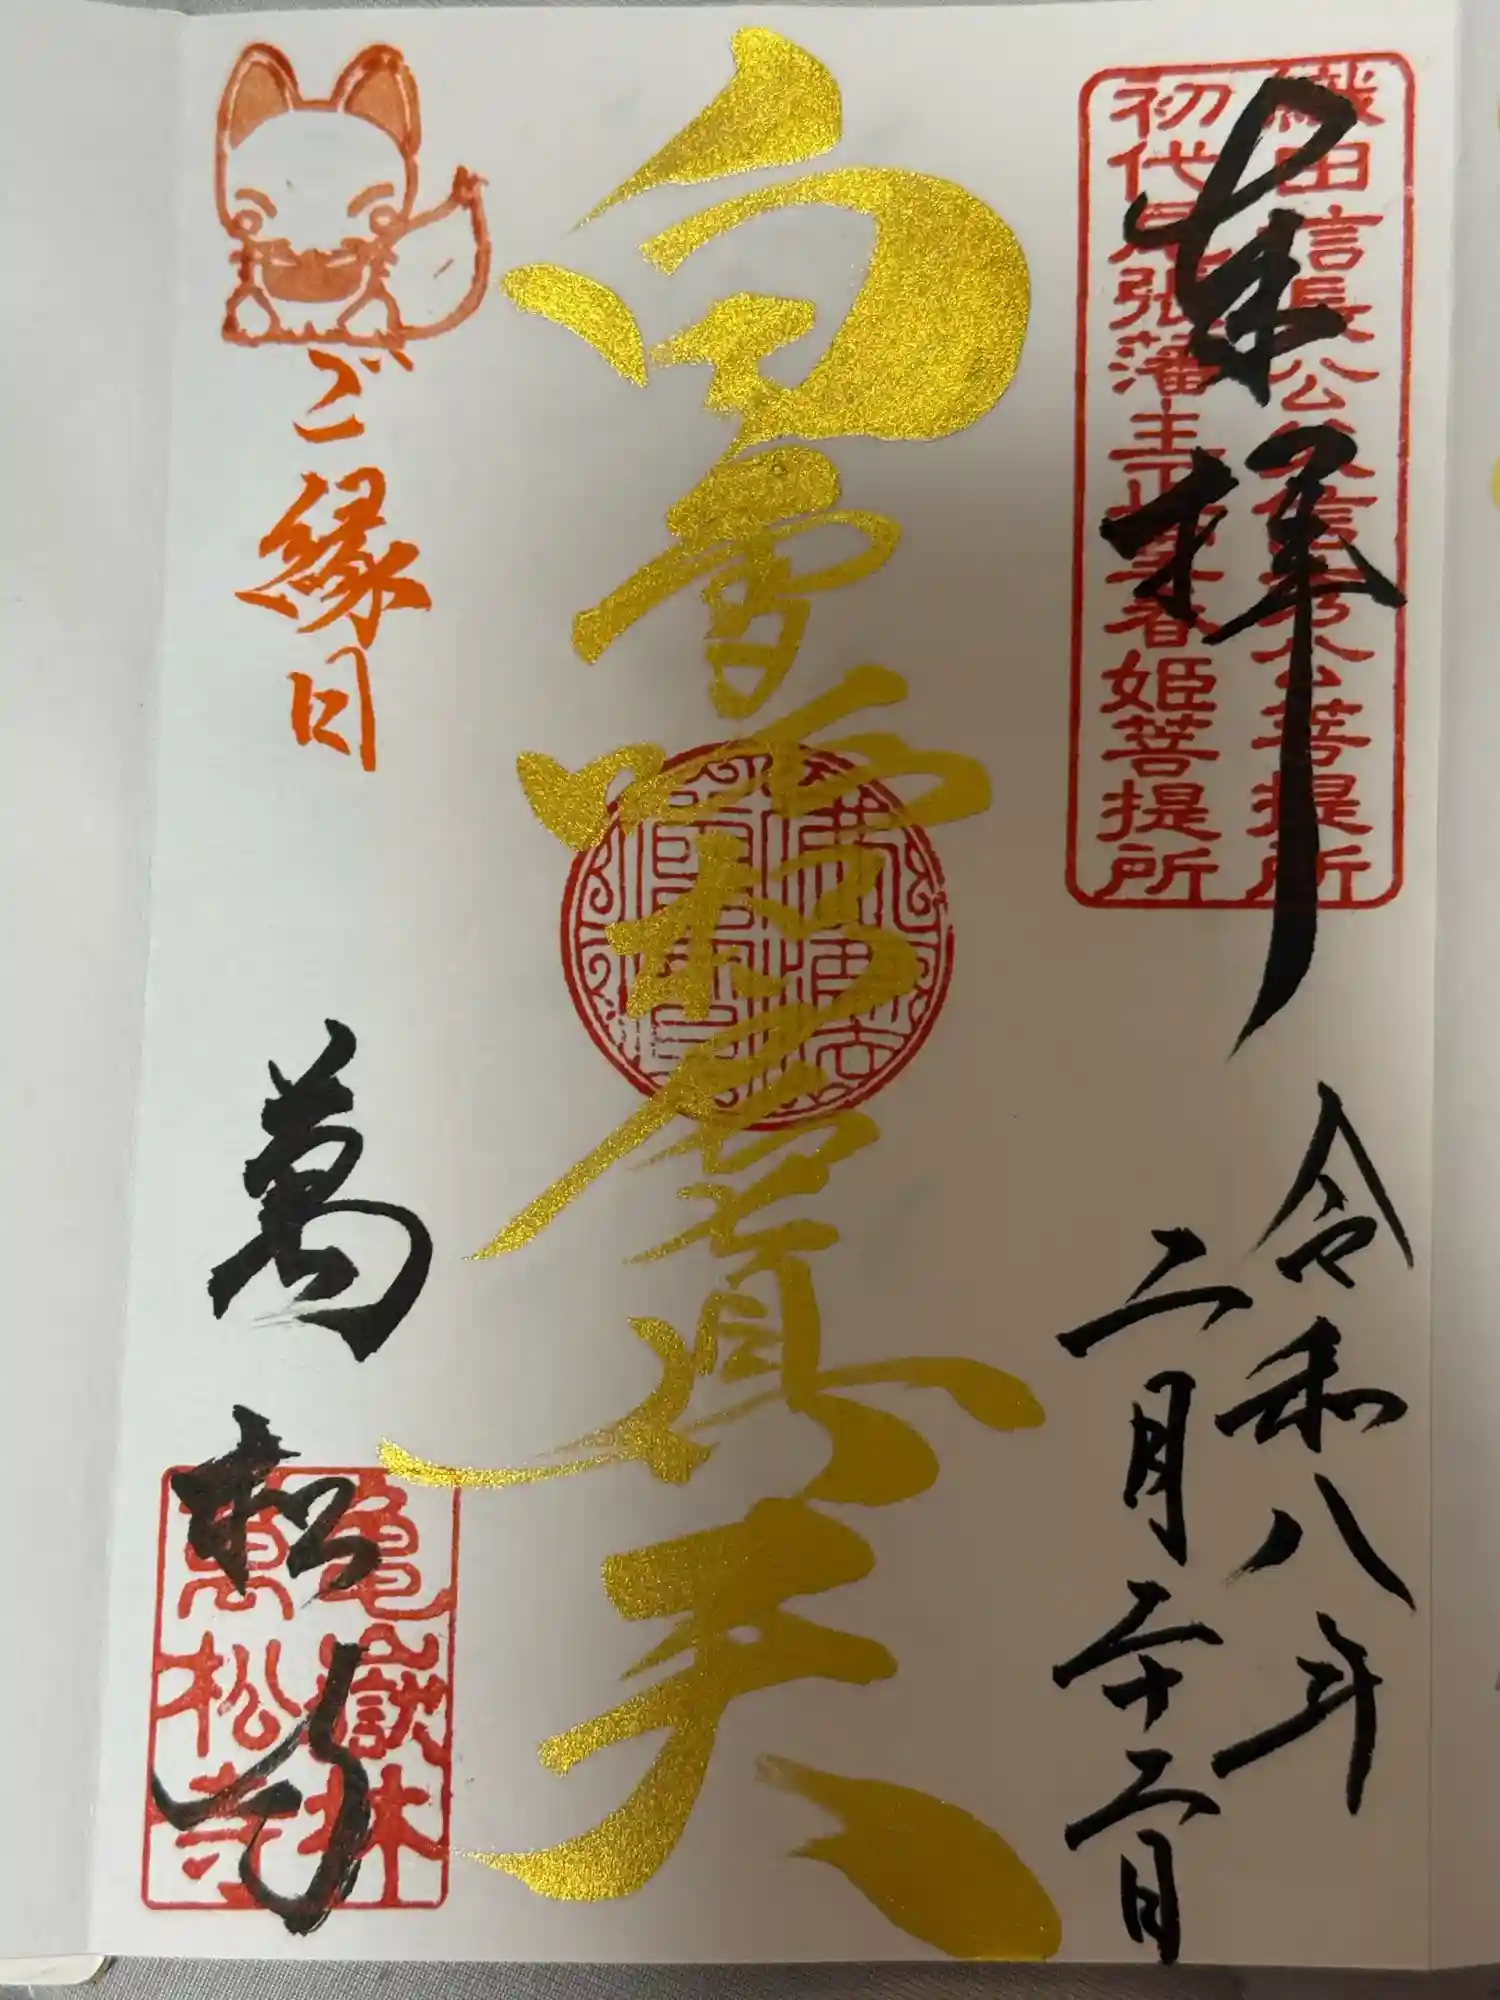 奉拝
織田信長公父信秀公菩提所
初代尾張藩主正室春姫菩提所
令和八年
二月二十二日
白雪吒枳尼真天
ご縁日
萬松寺
亀嶽林
萬松寺